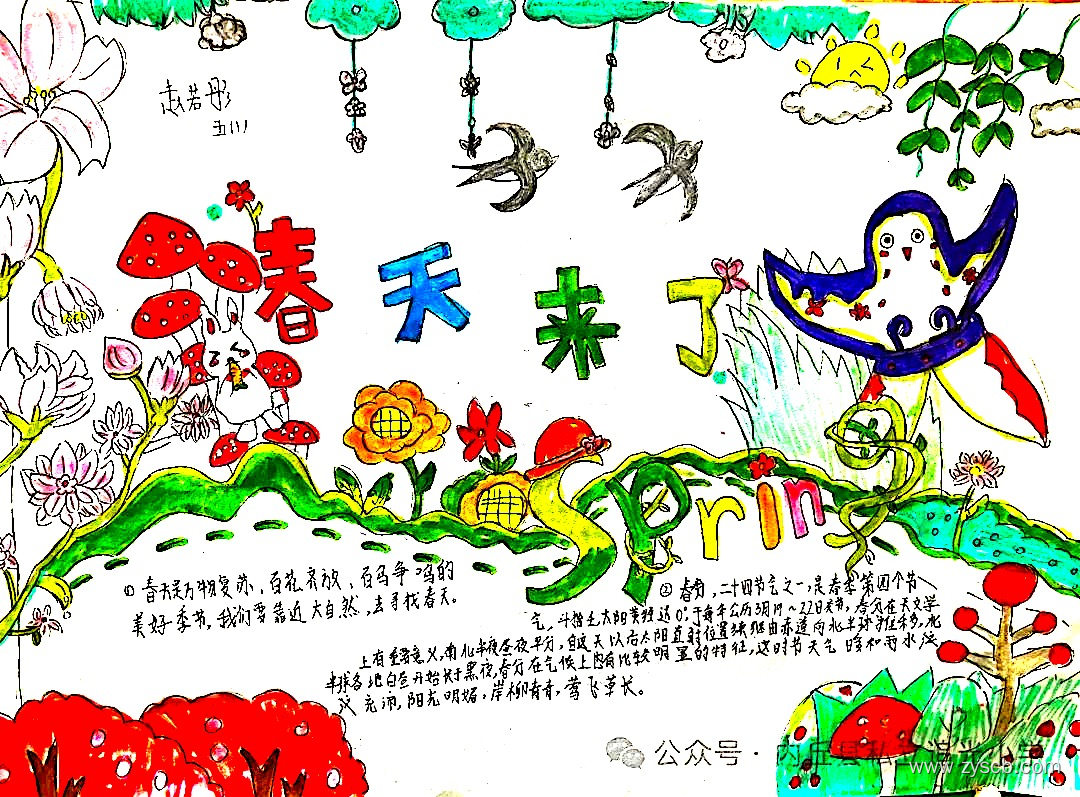 赵若彤
五(1)
春天来了
Spring
① 春天是万物复苏,百花齐放,百鸟争鸣的
美好季节,我们要靠近大自然,去寻找春天。
② 春分,二十四节气之一,是春季第四个节
气,斗指 太阳黄经达0°,于每年公历3月19~22日交节,春分在天文学
上有重要意义,南北半球昼夜平分,自这天以后太阳直射位置继续由赤道向北半球推移,北
半球各地白昼开始长于黑夜,春分在气候上也有比较明显的特征,这时节天气暖和雨水
充沛,阳光明媚,岸柳青青,莺飞草长。
公众号·内丘县私立 小学
www.zysco.com